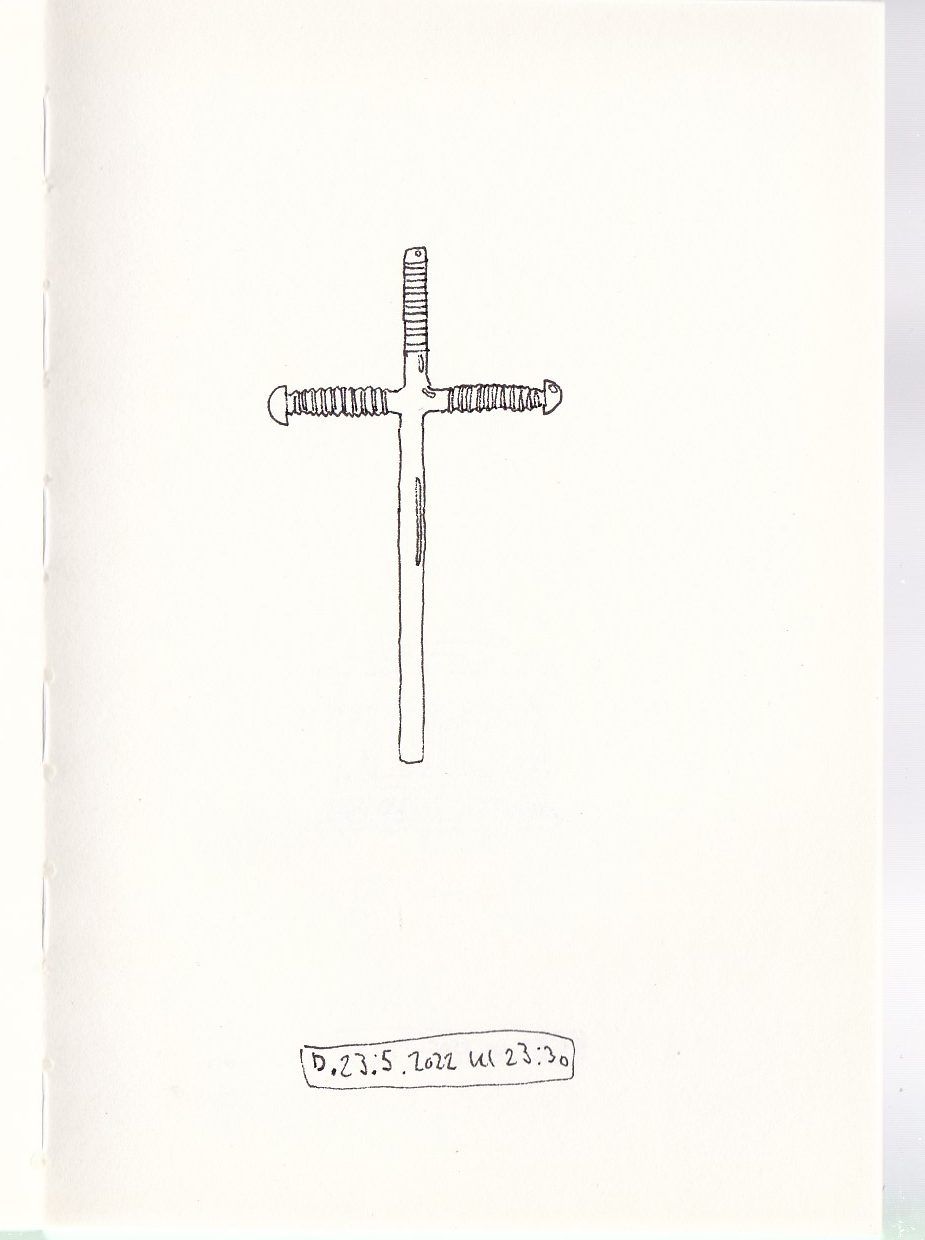 D.23.5.2022 kl 23:30